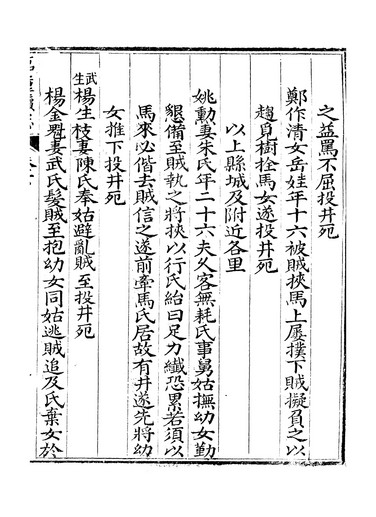 之益罵不屈投井死
鄭作清女岳娃年十六被賊挾馬上屢撲下賊擬負之以
趨負樹栓馬女遂投井死
以上縣城及附近各里
姚勳妻朱氏年二十六夫久客無耗氏事舅姑撫幼女勤
懇備至賊執之將挾以行氏紿曰足力纖恐累若須以
馬來必偕去賊信之遂前牽馬氏居故有井遂先將幼
女推下投井死
武生楊生枝妻陳氏奉姑避亂賊至投井死
楊金瞾妻武氏髮賊至抱幼女同姑逃賊追及氏棄女於